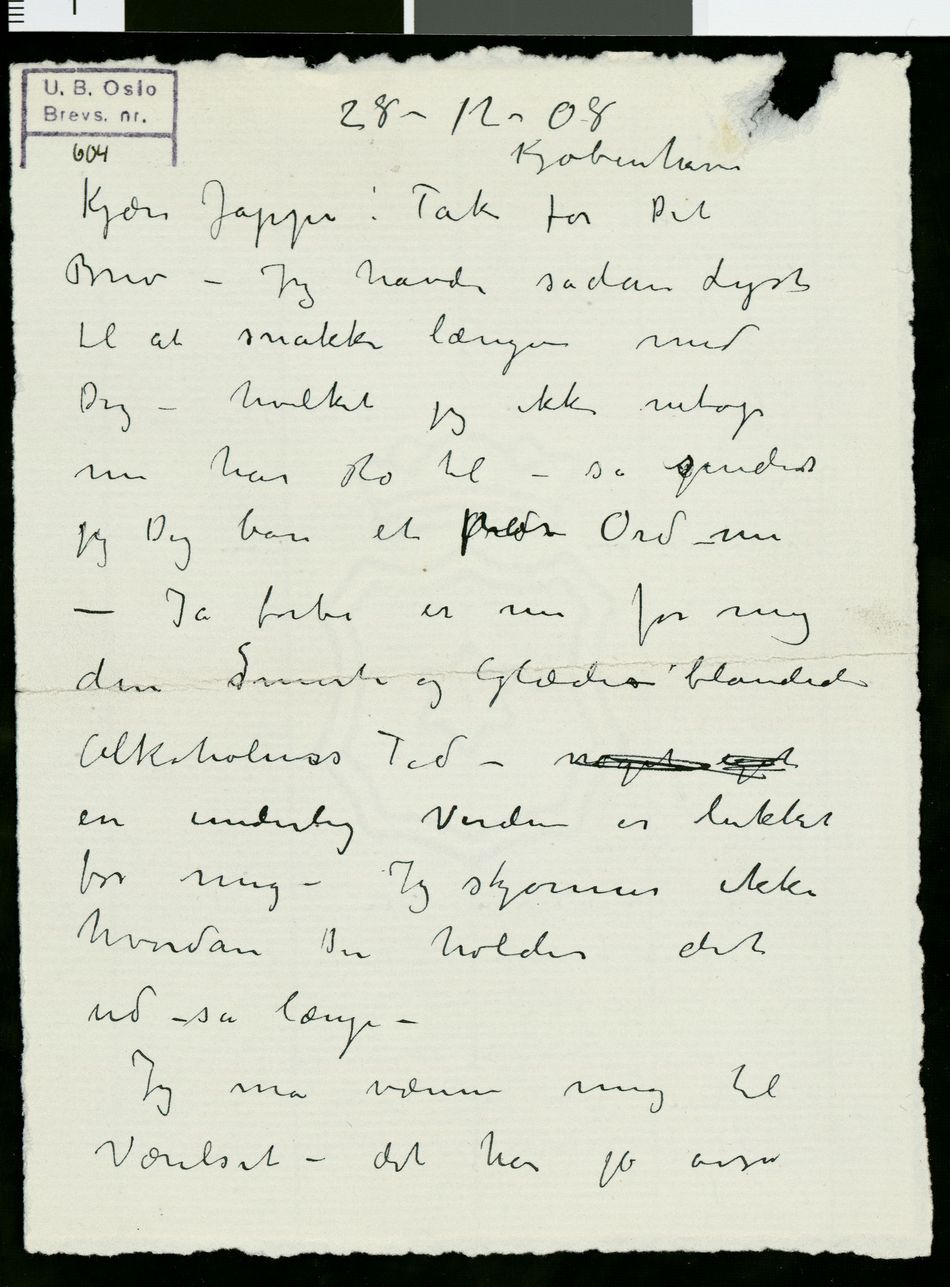 U. B. Oslo
Brevs. nr.
604
28 – 12 – 08
Kjøbenhavn
Kjære Jappe! Tak for Dit
Brev – Jeg havde sådan Lyst
til at snakke længe med
Dig – hvilket jeg ikke netop
nu har Ro til – så sender
jeg Dig bare et Ord nu
– Ja forbi er nu for mig
den Smerte og Glædes blandede
Alkoholens Tid – noget eget
en underlig Verden er lukket
for mig – Jeg skjønner ikke
hvordan Du holder det
ud – så længe –
Jeg må vænne mig til
Værelset – det har jo også